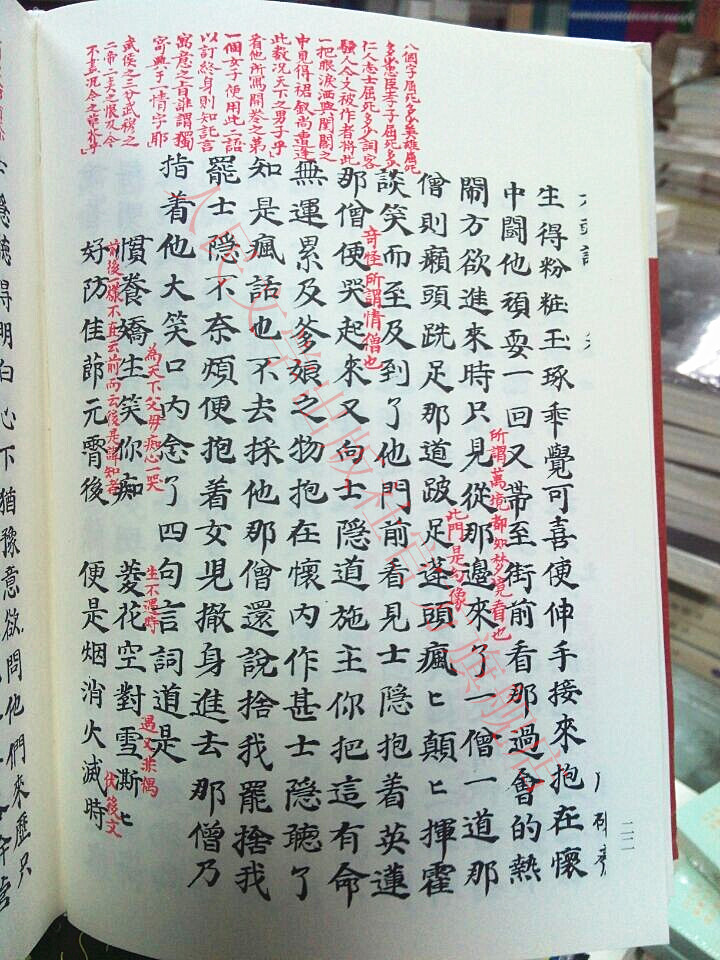 生得粉粧玉琢乖覺可喜便伸手接來抱在懷
中鬪他頑耍一回又帶至街前看那過會的熱
鬧方欲進來時只見從那邊來了一僧一道那
所謂萬境都如梦境看也
僧則癩頭跣足那道跛足蓬頭瘋匕顛匕揮霍
此門是幻像
談笑而至及到了他門前看見士隱抱着英蓮
那僧便哭起來又向士隱道施主你把這有命
奇怪所謂情僧也
無運累及爹娘之物抱在懷內作甚士隱聽了
知是瘋話也不去採他那僧還說捨我罷捨我
罷士隱不奈煩便抱着女児撤身進去那僧乃
指着他大笑口內念了四句言詞道是
慣養嬌生笑你痴 菱花空對雪澌匕
為天下父母痴心一哭
生不遇時
遇又非偶
好防佳節元霄後 便是烟消火滅時
前後一樣不直云前而云後是諱知者
伏後文
八個字屈死多少英雄屈死
多少忠臣孝子屈死多少
仁人志士屈死多少詞客
騷人今又被作者將此
一把眼淚洒與閨閣之
中見得裙釵尚遭逢
此数况天下之男子乎
看他所寫開卷之第
一個女子便用此二語
以訂終身則知託言
寓意之旨誰謂獨
寄興于一情字耶
武侯之三分武穆之
二帝二夫之恨及今
不盡况今之草芥乎
二二
隱聽得明白心下猶豫意欲問他們來歷只
人民文学出版社官方旗舰店